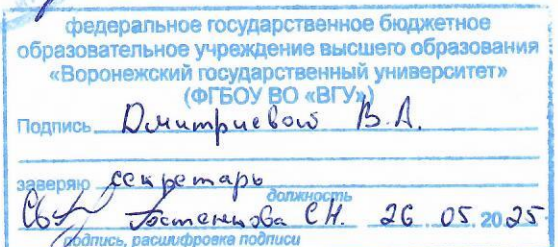 федеральное государственное бюджетное
образовательное учреждение высшего образования
«Воронежский государственный университет»
(ФГБОУ ВО «ВГУ»)
Подпись Дмитриевой В.А.
заверяю секретарь
должность
С.Н. 26 05 2025
подпись, расшифровка подписи